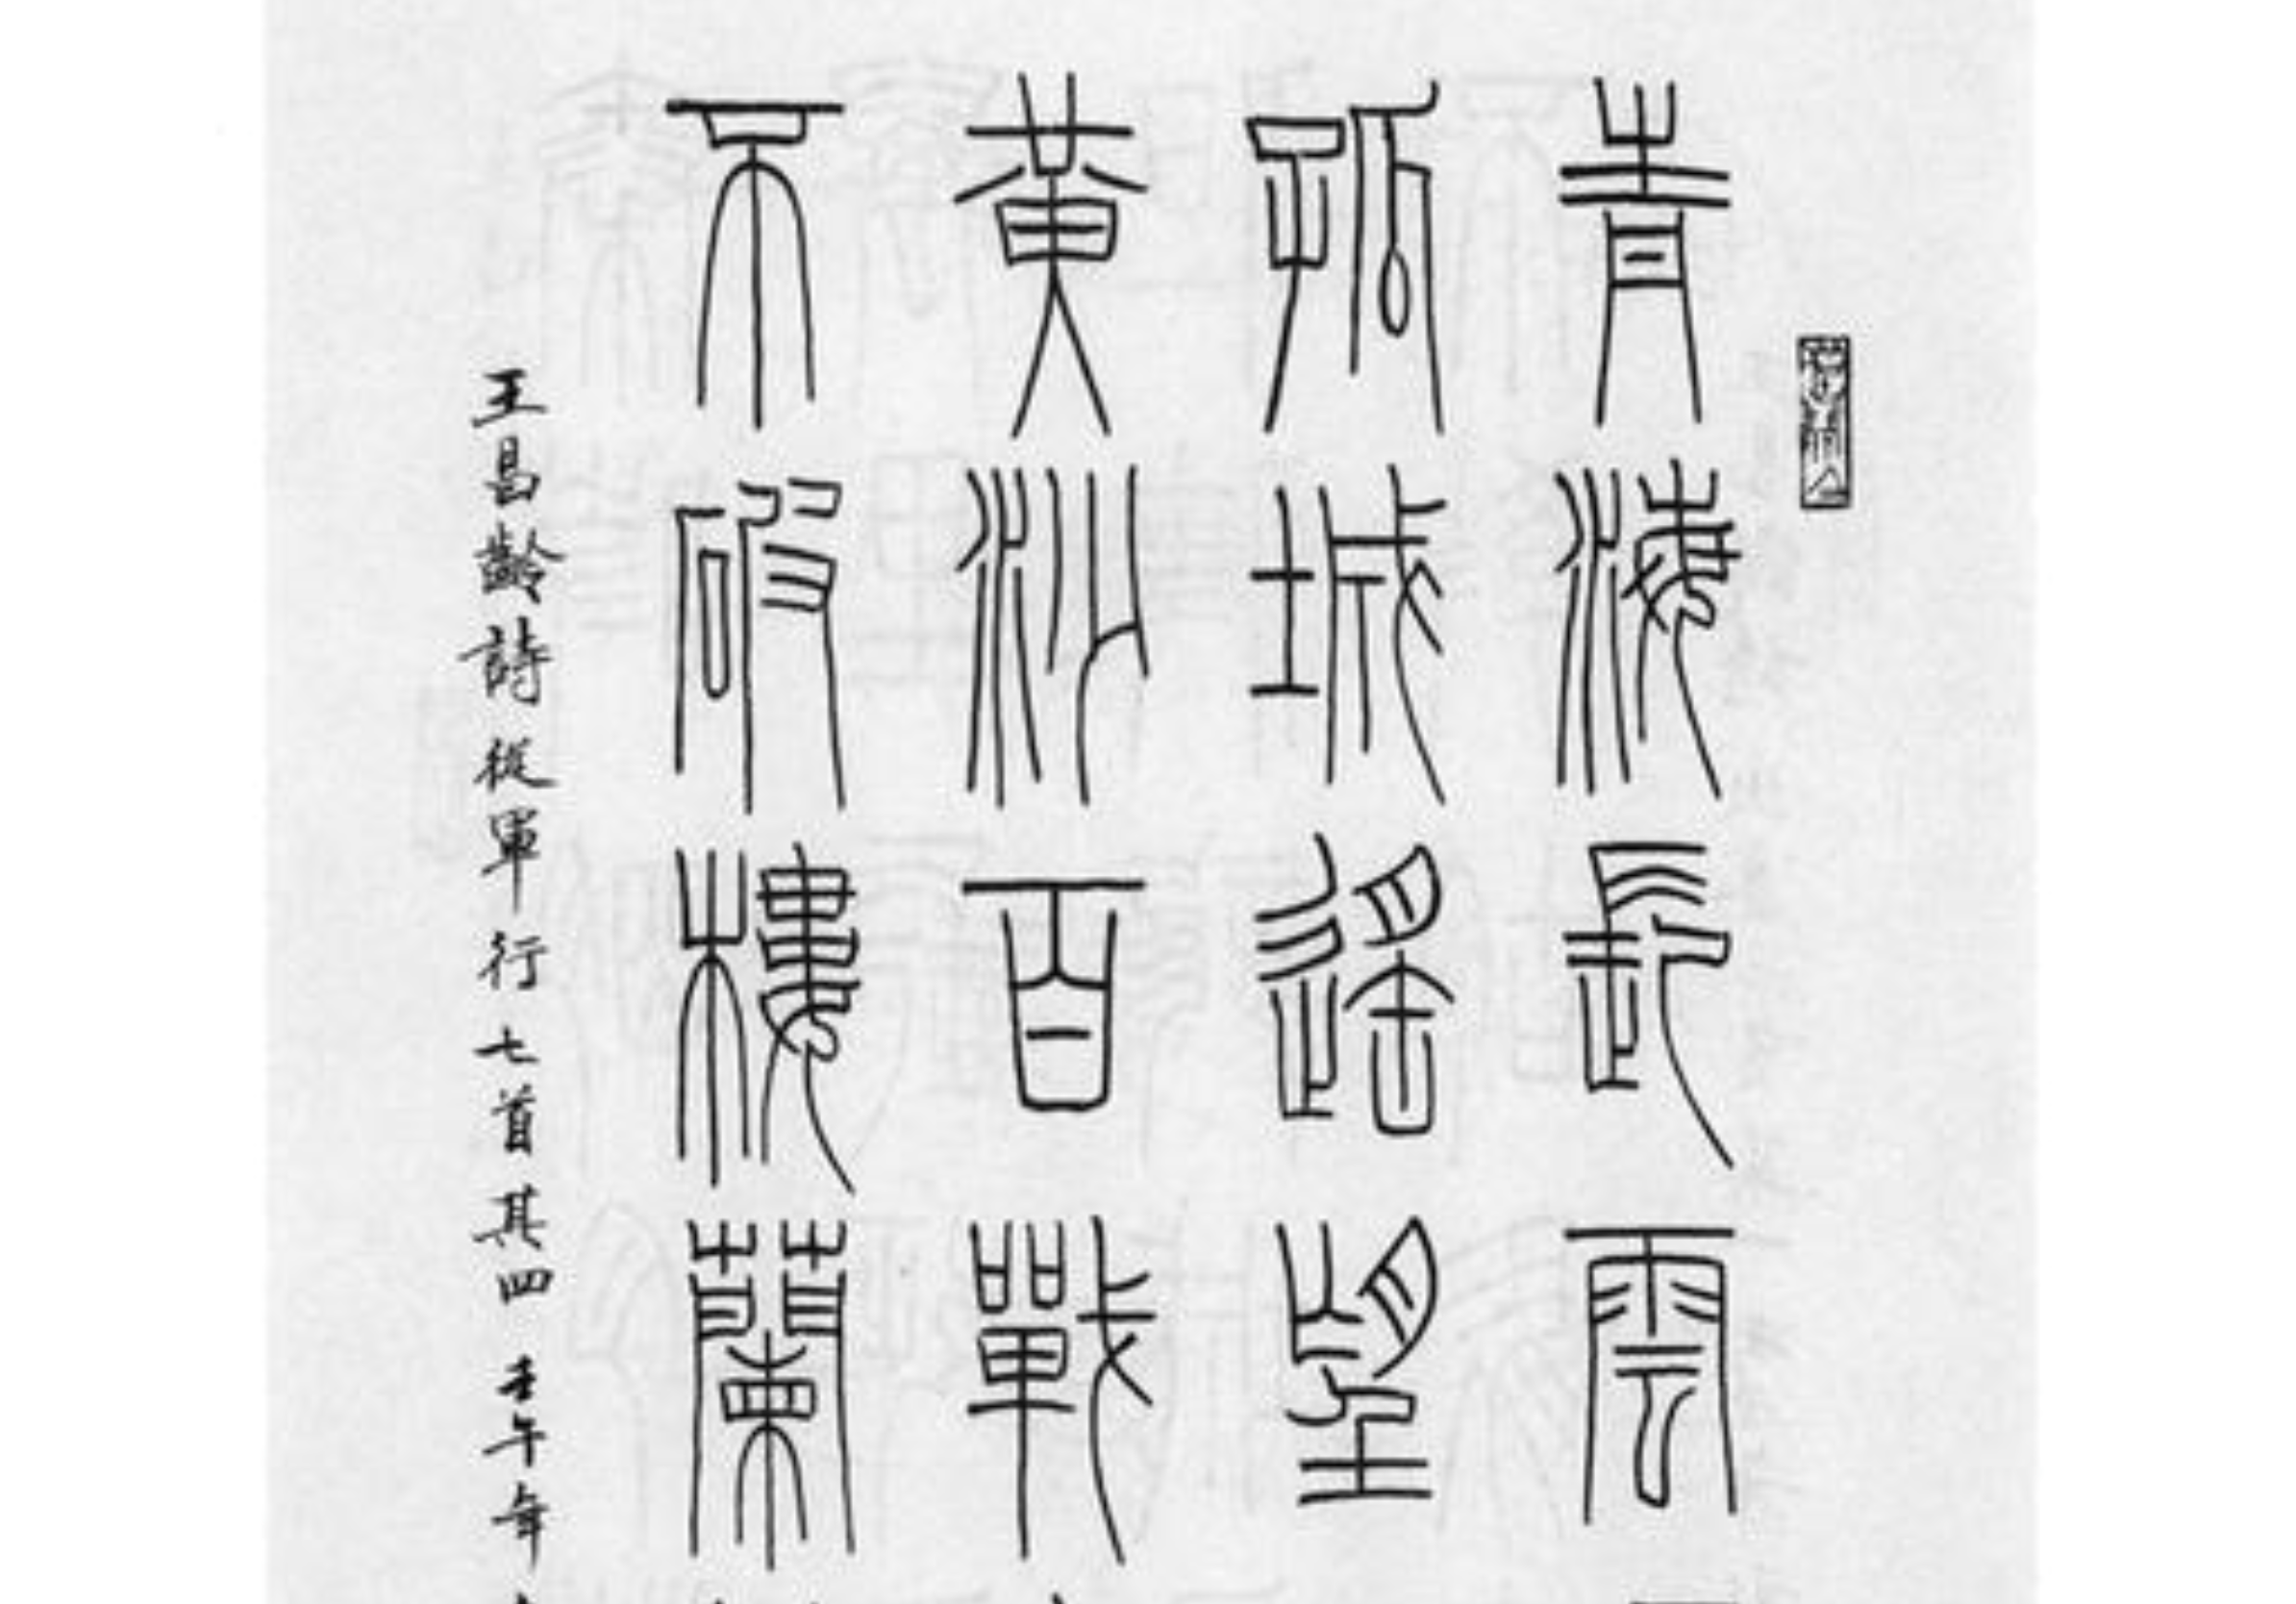 青海長雲
孤城遙望
黃沙百戰
不破樓蘭
王昌齡詩從軍行七首其四 壬午年